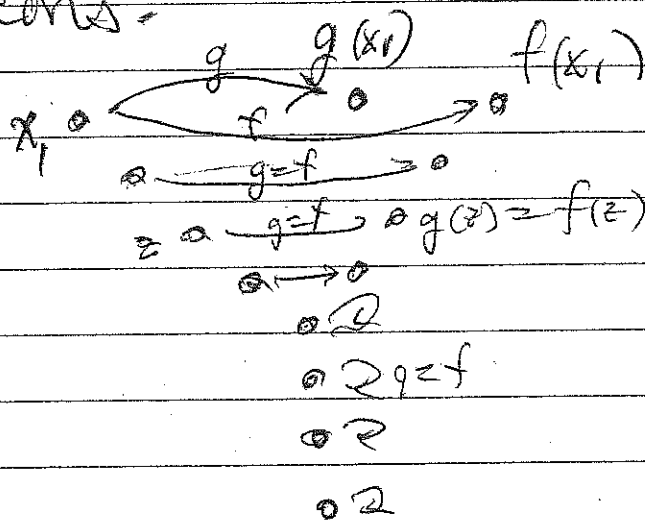 g g(x₁) f(x₁)
x₁ f
g=f
z g=f g(z)=f(z)
g=f